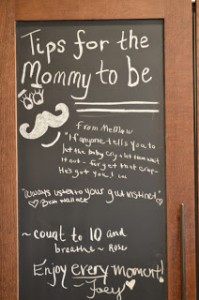 Tips for the
Mommy to be
From MeMaw
"If anyone tells you to
let the baby cry a bit then wait
it out - forget that crap-
He's got you!
"Always listen to your gut instinct"
♡ Bea
~ count to 10 and
breathe ~ Rose
Enjoy every moment!
♡ Joey ♡